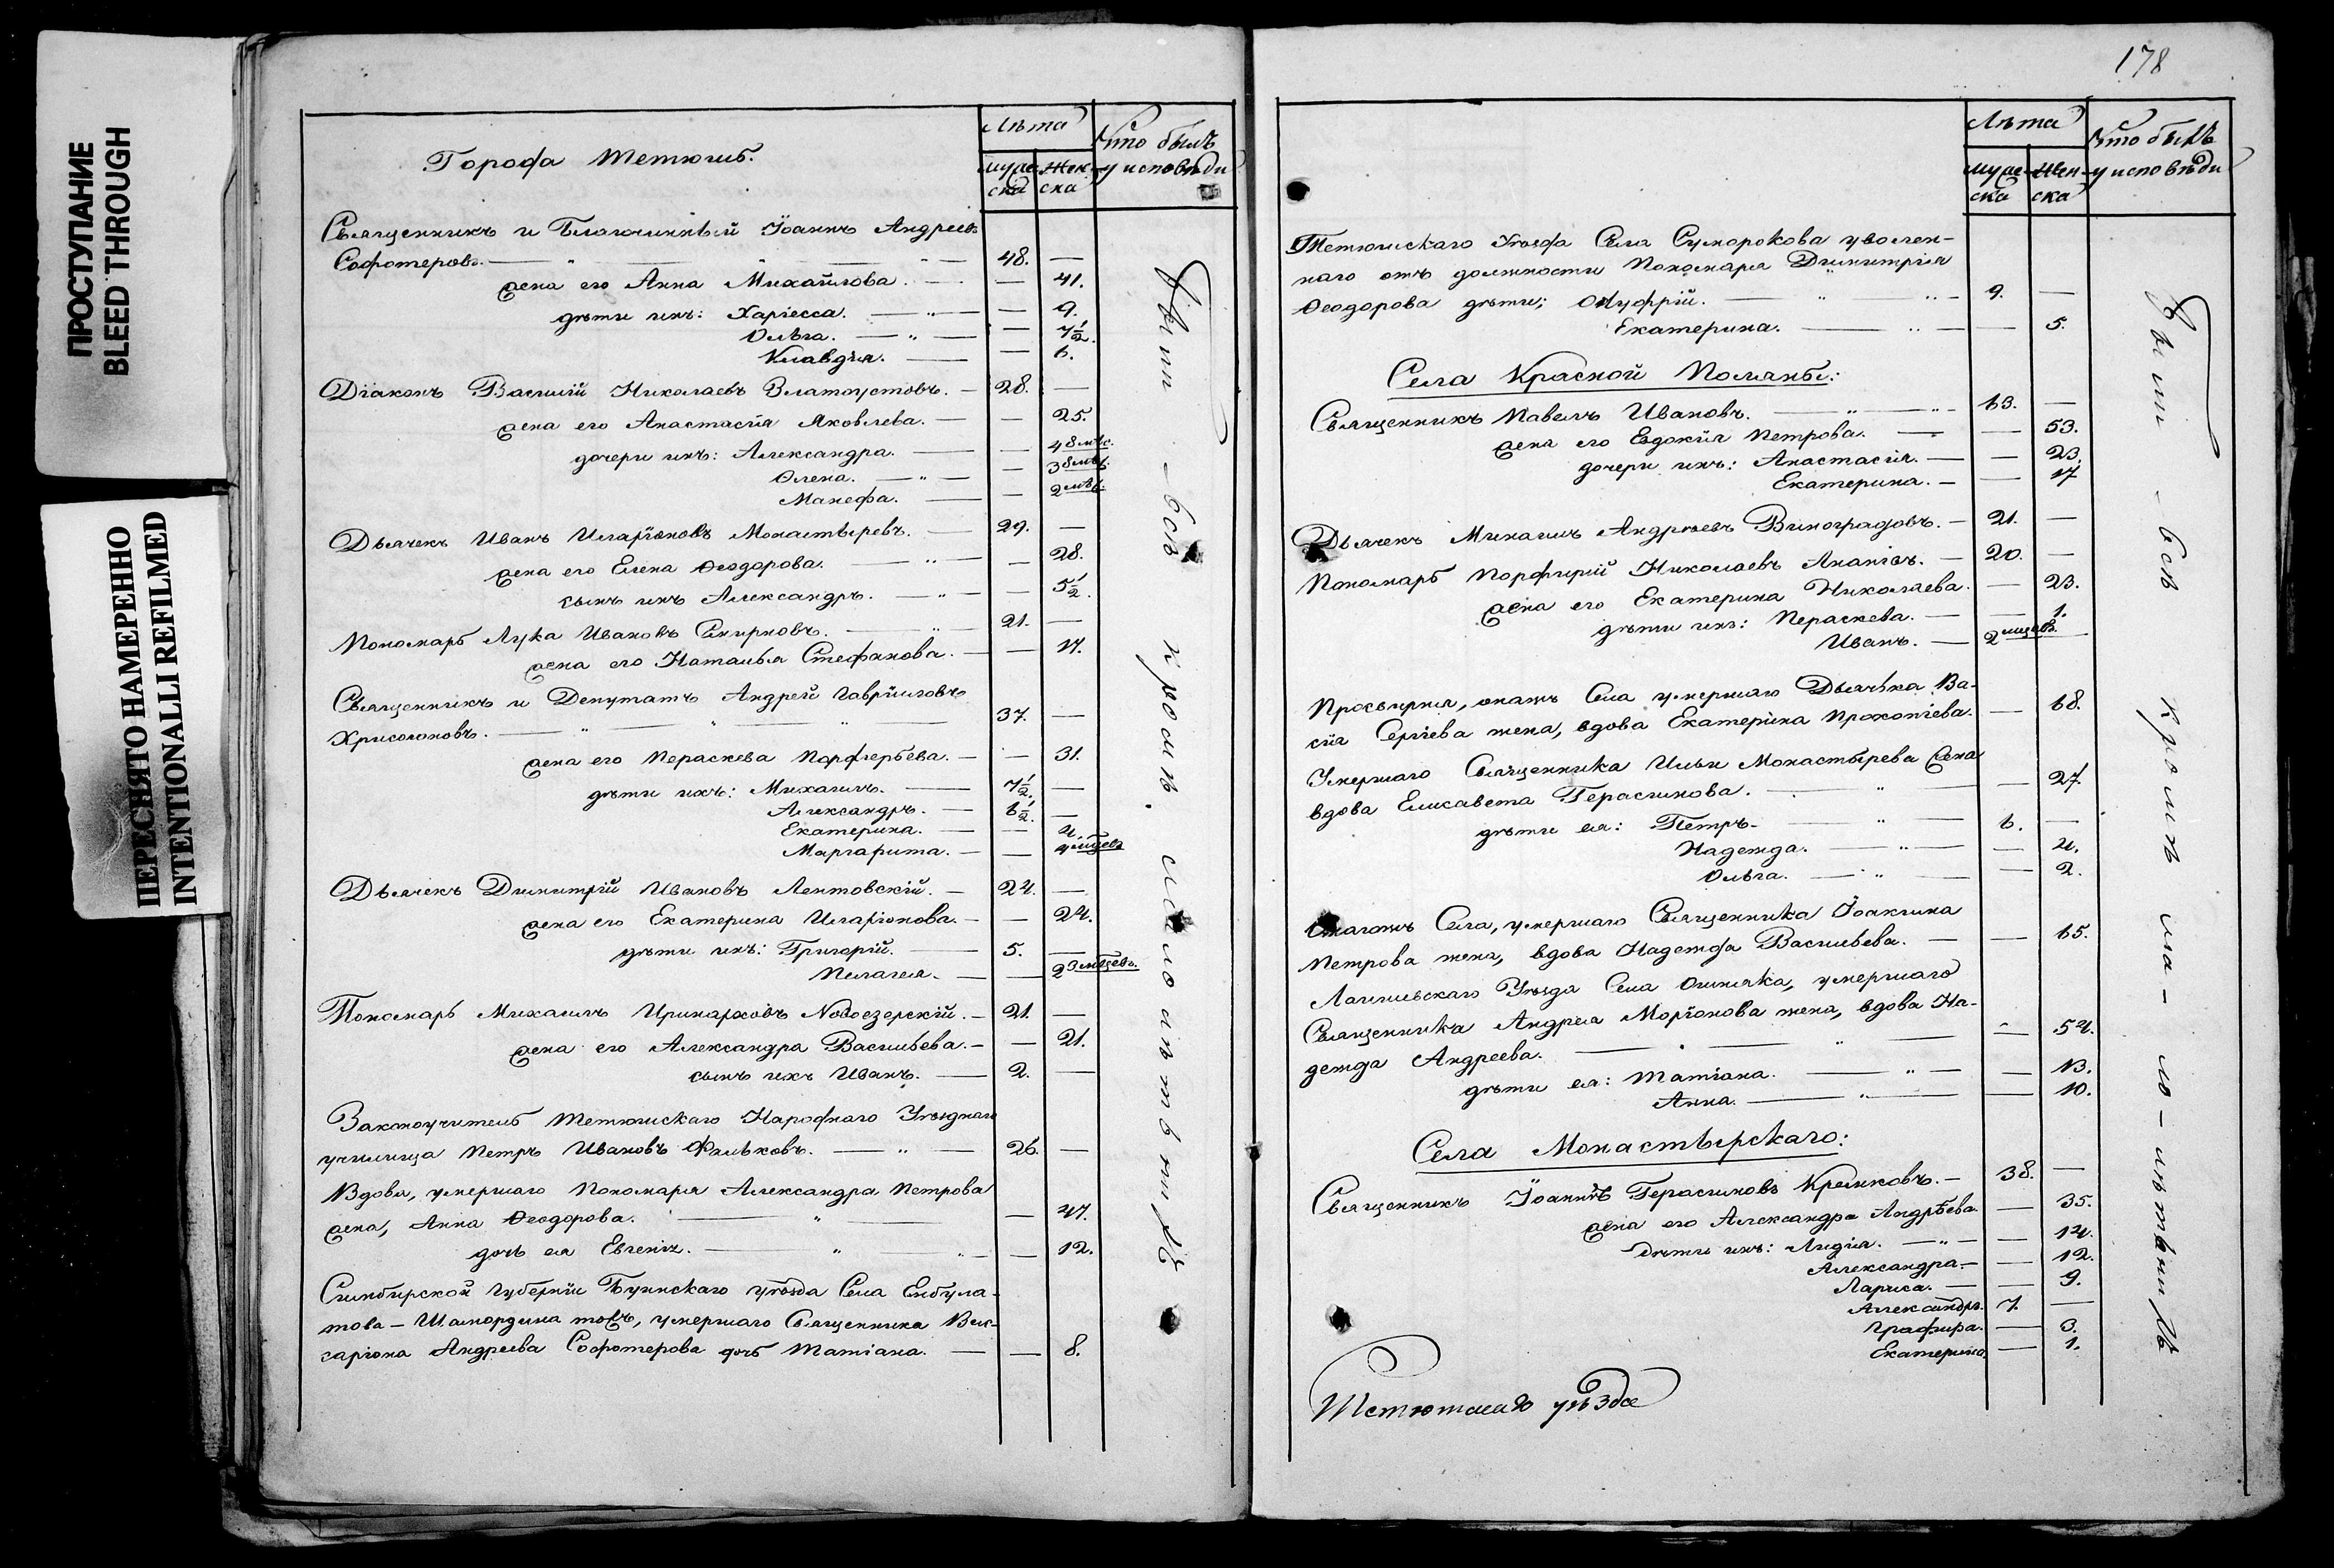 ПРОСТУПАНИЕ
BLEED THROUGH
ПЕРЕСНЯТО НАМЕРЕННО
INTENTIONALLI REFILMED
Города Тетюшъ.
Лѣта
муже-
ска
Жен-
ска
Кто былъ
у исповѣди
Священникъ и Благочинный Іоаннъ Андреевъ
Софотеровъ. 48.
жена его Анна Михайлова. 41.
дѣти ихъ: Харіесса. 9.
Ольга. 7 1/2.
Клавдія. 6.
Діаконъ Василій Николаевъ Златоустовъ. 28.
жена его Анастасія Яковлева. 25.
дочери ихъ: Александра. 4 8 мѣс.
Олена. 3 8 мѣс.
Манефа. 2 мѣс.
Дьячекъ Иванъ Иларіоновъ Монастыревъ. 29.
жена его Елена Ѳеодорова. 28.
сынъ ихъ Александръ. 5 1/2.
Пономарь Лука Ивановъ Смирновъ. 21.
жена его Наталья Стефанова. 17.
Священникъ и Депутатъ Андрей Гавріиловъ
Хрисогоновъ. 37.
жена его Параскева Порфирьева. 31.
дѣти ихъ: Михаилъ. 7 1/2.
Александръ. 6 1/2.
Екатерина. 4.
Маргарита. 4 мѣсецъ
Дьячекъ Димитрій Ивановъ Лентовскій. 24.
жена его Екатерина Иларіонова. 24.
дѣти ихъ: Григорій. 5.
Пелагея. 2 3 мѣсецъ.
Пономарь Михаилъ Иринарховъ Новоезерскій. 21.
жена его Александра Васильева. 21.
сынъ ихъ Иванъ. 2.
Законоучитель Тетюшскаго Народнаго Уѣзднаго
училища Петръ Ивановъ Фальковъ. 26.
Вдова, умершаго Пономаря Александра Петрова
жена, Анна Ѳеодорова. 47.
дочь ея Евгенія. 12.
Симбирской Губерніи Буинскаго уѣзда Села Енбула-
това-Шаморdина тожъ, умершаго Священника Вис-
саріона Андреева Софотерова дочь Татіана. 8.
Были всѣ кромѣ малолѣтныхъ
178
Лѣта
муже-
ска
Жен-
ска
Кто былъ
у исповѣди
Тетюшскаго Уѣзда Села Сумарокова уволен-
наго отъ должности Пономаря Димитрія
Ѳеодорова дѣти; Онуфрій. 9.
Екатерина. 5.
Села Красной Поляны:
Священникъ Павелъ Ивановъ. 63.
жена его Евдокія Петрова. 53.
дочери ихъ: Анастасія. 23.
Екатерина. 17
Дьячекъ Михаилъ Андреевъ Виноградовъ. 21.
Пономарь Порфирій Николаевъ Ананьевъ. 20.
жена его Екатерина Николаева. 23.
дѣти ихъ: Параскева. 1.
Иванъ. 2 мѣсецъ.
Просвирня, онагожъ Села умершаго Дьячка Ва-
сія Сергіева жена, вдова Екатерина Прокопіева. 68.
Умершаго Священника Ильи Монастырева жена
вдова Елисавета Герасимова. 27.
дѣти ея: Петръ. 6.
Надежда. 4.
Ольга. 2.
Онагожъ Села, умершаго Священника Іоакима
Петрова жена, вдова Надежда Васильева. 65.
Лаишевскаго Уѣзда Села Ошняка, умершаго
Священника Андрея Моріонова жена, вдова На-
дежда Андреева. 54.
дѣти ея: Татіана. 13.
Анна. 10.
Села Монастырскаго:
Священникъ Іоаннъ Герасимовъ Крелковъ. 38.
жена его Александра Андреева. 35.
Дѣти ихъ: Лидія. 14.
Александра. 12.
Лариса. 9.
Александръ. 7.
Графира. 3.
Екатерина. 1.
Были всѣ кромѣ мало-лѣтныхъ
Тетюшскаго уѣзда